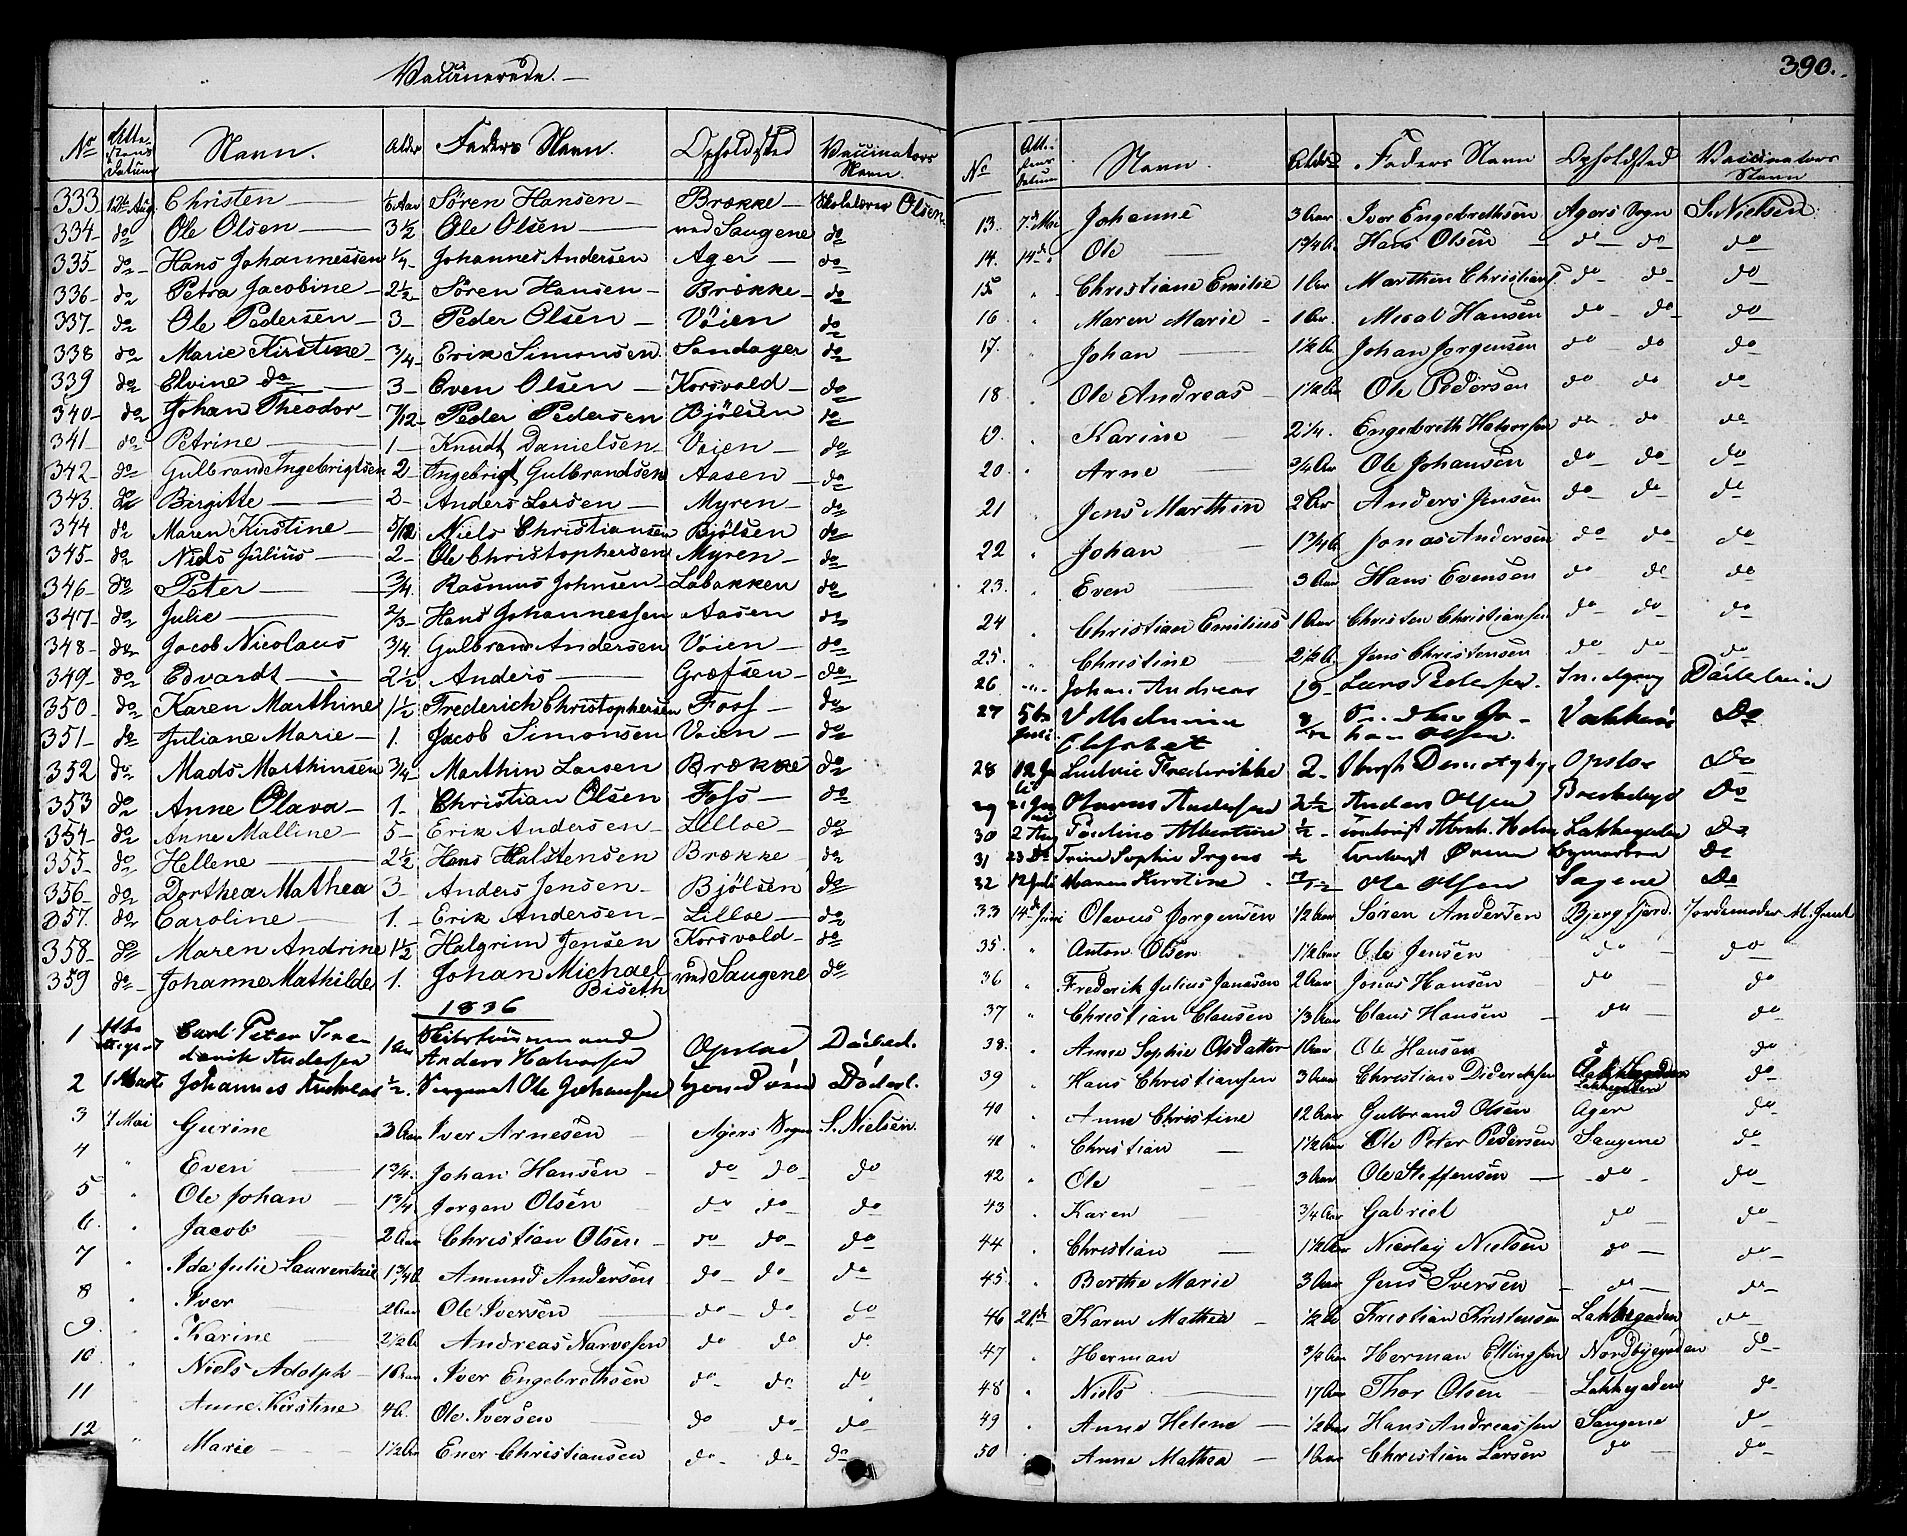 Vaccinerede.
No Attestens Datum Navn. Alder Faders Navn. Opholdsted Vaccinators Navn.
333 12te Aug. Christen — Søren Hansen — Brække — Skolelærer Olsen
334 do Ole Olsen — 3 1/2 Ole Olsen — ved Saugene do
335 do Hans Johannessen 1/4 Johannes Andersen Ager — do
336 do Petra Jacobine — 2 1/2 Søren Hansen — Brække — do
337 do Ole Pedersen — 3 — Peder Olsen — Vöien do
338 do Marie Kirstine — 3/4 Erik Simonsen Sandager do
339 do Elvine do — 3 — Even Olsen — Korsvold — do
340 do Johan Theodor — 7/12 Peder Pedersen Bjölsen do
341 do Petrine — 1 — Knudt Danielsen — Voien — do
342 do Gulbrand Ingebrigtsen 2 Ingebrigt Gulbrandsen Aasen — do
343 do Birgitte — 2 — Anders Larsen — Myren — do
344 do Maren Kirstine — 5/12 Niels Christiansen Bjölsen do
345 do Niels Julius — 2 — Ole Christophersen Myren — do
346 do Peter — 3/4 Rasmus Johnsen — Labakken do
347 do Julie — 2/3 Hans Johannessen Aasen do
348 do Jacob Nicolaus 3/4 Gulbrand Andersen Voien — do
349 do Edvardt — 2 1/2 Anders — Græfsen — do
350 do Karen Marthine 1 1/2 Frederich Christophersen Foss — do
351 do Juliane Marie — 1. Jacob Simonsen Voien — do
352 do Mads Marthinsen 3/4 Marthin Larsen Brække do
353 do Anne Olava — 1. Christian Olsen — Foss — do
354 do Anne Malline — 5 — Erik Andersen — Lilloe — do
355 do Hellene — 2 1/2 Hans Halstensen Brække — do
356 do Dorthea Mathea 3 Anders Jensen — Bjölsen do
357. do Caroline — 1. Erik Andersen — Lilloe — do
358 do Maren Andrine 1 1/2 Halgrim Jensen Korsvold — do
359 do Johanne Mathilde 1. Johan Michael Biseth ved Saugene do
1836
1 Carl Peter Frederik Andersen 1 Aar Anders Halvorsen Opslo
2 1 Marts Johannes Andreas 1/2. Ole Johansen
3 7 Mai Gurine 3 Aar Iver Arnesen Agers Sogn S. Nielsen
4 " Even 1 3/4. Johan Hansen do do do
5 " Ole Johan 1 3/4 Jørgen Olsen do do do
6. " Jacob 2 Aar Christian Olsen do do do
7 " Ida Julie Laurentzie 1 3/4 Amund Andersen do do do
8 " Iver 2 Aar Ole Iversen do do do
9. " Karine 2 1/2 Andreas do do do
10. " Niels Adolph 1 Aar Iver Engebrethsen do do do
11 Anne Kirstine 4 Ole Iversen do do do
12 " Marie 1 1/2 Aar Ener Christiansen do do do
390.
No Attestens Datum Navn. Alder Faders Navn Opholdsted Vaccinators Navn
13. 7de Mai Johanne 3 Aar Iver Engebrethsen Agers Sogn S. Nielsen
14. 14de Ole 1 3/4 Hans Olsen do do do
15 " Christiane Emilie 1 Aar Marthin do do do
16 " Maren Marie 1 Aar Hansen do do do
17. " Johan 1 1/2 Johan Jørgensen do do do
18 " Ole Andreas 1 1/2 Aar Ole Pedersen do do do
19 " Karine 2 1/4. Engebreth Halvorsen do do do
20 " Arne 3/4 Aar Ole Johansen do do do
21 " Jens Marthin 2 Aar Anders Jensen do do do
22 " Johan 1 3/4 Jonas Andersen do do do
23. " Even 3 Aar Hans Evensen do do do
24 " Christian Emilius 1 Aar Christen Christiansen do do do
25. " Christine 2 1/2 Jens Christensen do do do
26 Johan Andreas 19 Lars Pedersen
27 5te Juli Vilhelmine Elisabet Johan Olsen. Do
28 12 Ludvic Frederikke 2 Opsloe Do
29 21 Olavus Andersen 2 1/2 Anders Olsen Do
30 2 Aug Pauline Albertine 1/2 Lakkegaden Do
31 23 Do Trine Sophie 1/2 Do
32 12 Juli Maren Kirstine 7/12 Ole Olsen Sagene Do
33 14de Juni Olavus Jørgensen 1/2 Aar Søren Andersen Jordemoder M.
35. " Anton Olsen 1 1/2 Aar Ole Jensen do do
36 " Frederik Julius Jonassen 2 Aar Jonas Hansen do do
37 " Christian Clausen 1/3 Aar Claus Hansen do do
38. " Anne Sophie Olsdatter 1 Aar Ole Hansen do
39 " Hans Christiansen 3 Aar Christian Dideriksen Lakkegaden do
40 " Anne Christine 12 Aar Gulbrand Olsen Ager do
41 " Christian 1 1/2 Aar Ole Peter Pedersen Saugene do
42 " Ole 3 Aar Ole Steffensen do do
43 " Karen 3/4 Aar Gabriel do do
44 " Christian 1 1/2 Aar Nicolay Nielsen do do
45. " Berthe Marie 3 Aar Jens Iversen do do
46 21de Karen Mathea 1/2 Kristian Kristensen Lakkegaden do
47 " Herman 3/4 Aar Herman Ellingsen do
48 " Niels 17 Aar Thor Olsen Lakkegaden do
49 " Anne Helene 1/2 Aar Hans Andreassen Saugene do
50 " Anne Mathea 1 Aar Christian Larsen do do